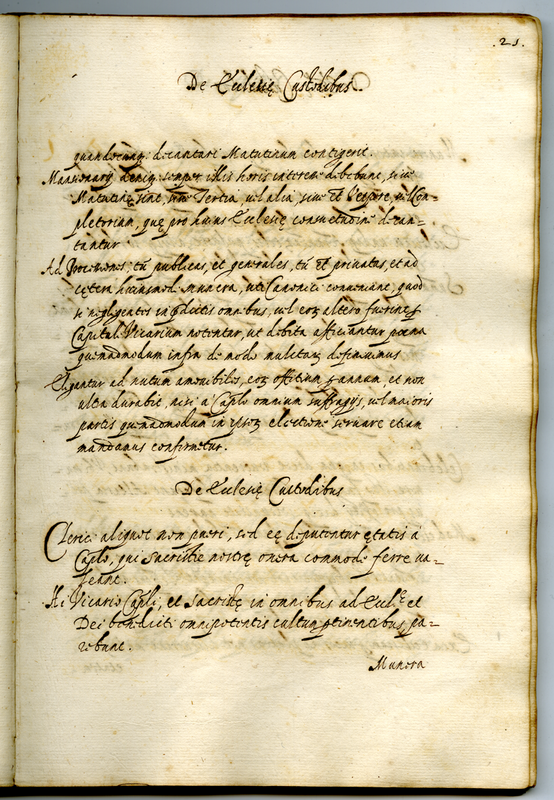 .21.
De Ecclesię Custodibus.
quandocunq; decantari Matutinum contigerit.
Mansionarij deniq; semper illis horis interesse debebunt, siue
Matutinę sint, siue Tertia, uel alia, siue et Vespere, uel Com-
pletorium, quę pro huius Ecclesię consuetudine decan-
tantur
Ad Processiones; tũ publicas, et generales, tũ et priuatas, et ad
cętera huiusmodi munera, uti Canonici conueniant, quod
si negligentes in pdictis omnibus, uel eoꝝ altero fuerint, p
Capituli Vicarium notentur, ut debita afficiantur poena
quemadmodum infra de modo mulctarum definiuimus
Eligantur ad nutum amouibiles, eoꝝ offitium p annum, et non
ultra durabit, nisi à Caplo omnium suffragijs, uel maioris
partis quemadmodum in ipsoꝝ electione seruare etiam
mandamus confirmetur.
De Ecclesię Custodibus
Clerici aliquot non pueri, sed eę deputentur ętatis à
Caplo, qui Sacristię nostrę onera commode ferre ua-
leant.
Hi Vicario Capli, et Sacristę in omnibus ad Eccl.ę et
Dei benedicti omnipotentis cultum ptinentibus pa-
rebunt.
Munera